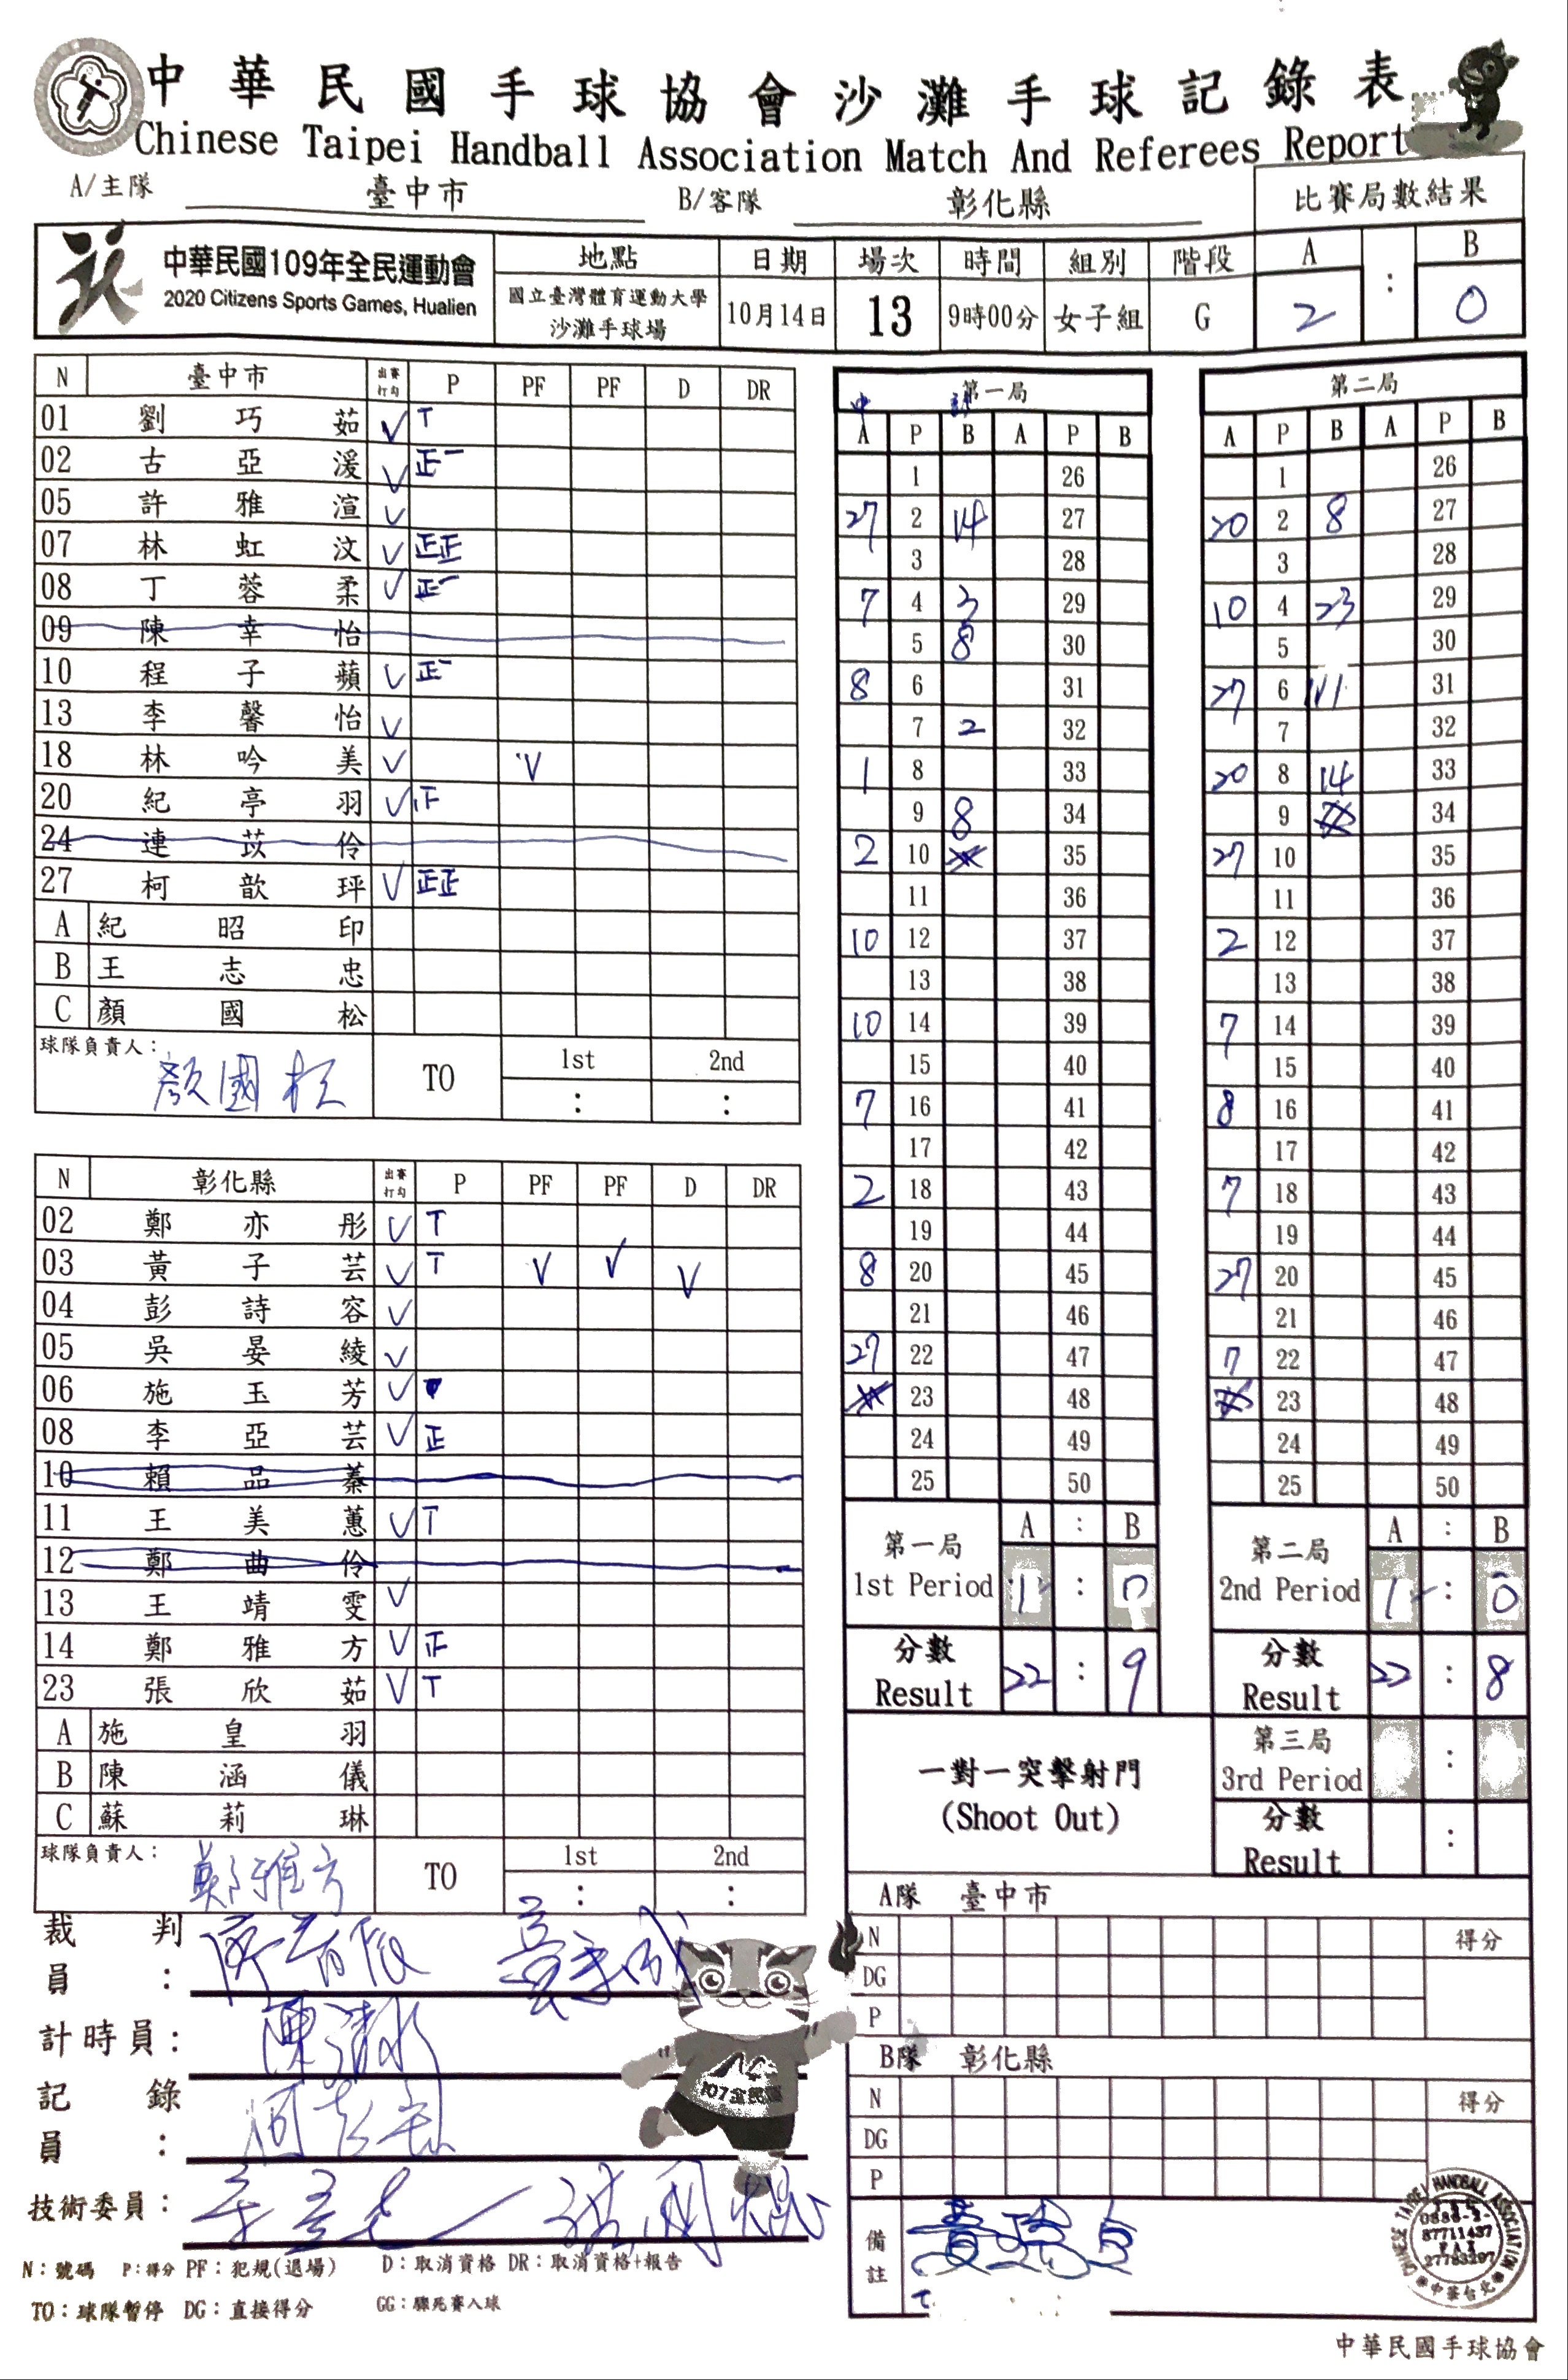 中華民國手球協會沙灘手球記錄表
Chinese Taipei Handball Association Match And Referees Report
A/主隊 臺中市 B/客隊 彰化縣 比賽局數結果
中華民國109年全民運動會 地點 日期 場次 時間 組別 階段 A : B
2020 Citizens Sports Games, Hualien 國立臺灣體育運動大學 沙灘手球場 10月14日 13 9時00分 女子組 G 2 0
N 臺中市 出賽打勾 P PF PF D DR
01 劉巧茹 V T
02 古亞湲 V 正一
05 許雅渲 V
07 林虹汶 V 正正
08 丁蓉柔 V 正一
09 陳幸怡
10 程子蘋 V 正一
13 李馨怡 V
18 林吟美 V V
20 紀亭羽 V
24 連苡伶
27 柯歆玶 V 正正
A 紀昭印
B 王志忠
C 顏國松
球隊負責人: 顏國松 TO 1st 2nd
: :
N 彰化縣 出賽打勾 P PF PF D DR
02 鄭亦彤 V T
03 黃子芸 V T V V V
04 彭詩容 V
05 吳晏綾 V
06 施玉芳 V
08 李亞芸 V 正
10 賴品蓁
11 王美蕙 V T
12 鄭曲伶
13 王靖雯 V
14 鄭雅方 V
23 張欣茹 V T
A 施皇羽
B 陳涵儀
C 蘇莉琳
球隊負責人: 鄭雅方 TO 1st 2nd
: :
裁判員:
計時員:
記錄員:
技術委員:
N:號碼 P:得分 PF:犯規(退場) D:取消資格 DR:取消資格+報告
TO:球隊暫停 DG:直接得分 GG:驟死賽入球
第一局
A P B A P B
1 26
27 2 14 27
3 28
7 4 3 29
5 8 30
8 6 31
7 2 32
1 8 33
9 8 34
2 10 35
11 36
10 12 37
13 38
10 14 39
15 40
7 16 41
17 42
2 18 43
19 44
8 20 45
21 46
27 22 47
23 48
24 49
25 50
第一局 1st Period A : B
1 : 0
分數 Result 22 : 9
第二局
A P B A P B
1 26
20 2 8 27
3 28
10 4 23 29
5 30
27 6 11 31
7 32
20 8 14 33
9 34
27 10 35
11 36
2 12 37
13 38
7 14 39
15 40
8 16 41
17 42
7 18 43
19 44
27 20 45
21 46
7 22 47
23 48
24 49
25 50
第二局 2nd Period A : B
1 : 0
分數 Result 22 : 8
一對一突擊射門
(Shoot Out)
第三局 3rd Period :
分數 Result :
A隊 臺中市
N 得分
DG
P
B隊 彰化縣
N 得分
DG
P
備註
107全民運
CHINESE TAIPEI HANDBALL ASSOCIATION
87711437
FAX
27783297
中華台北
中華民國手球協會